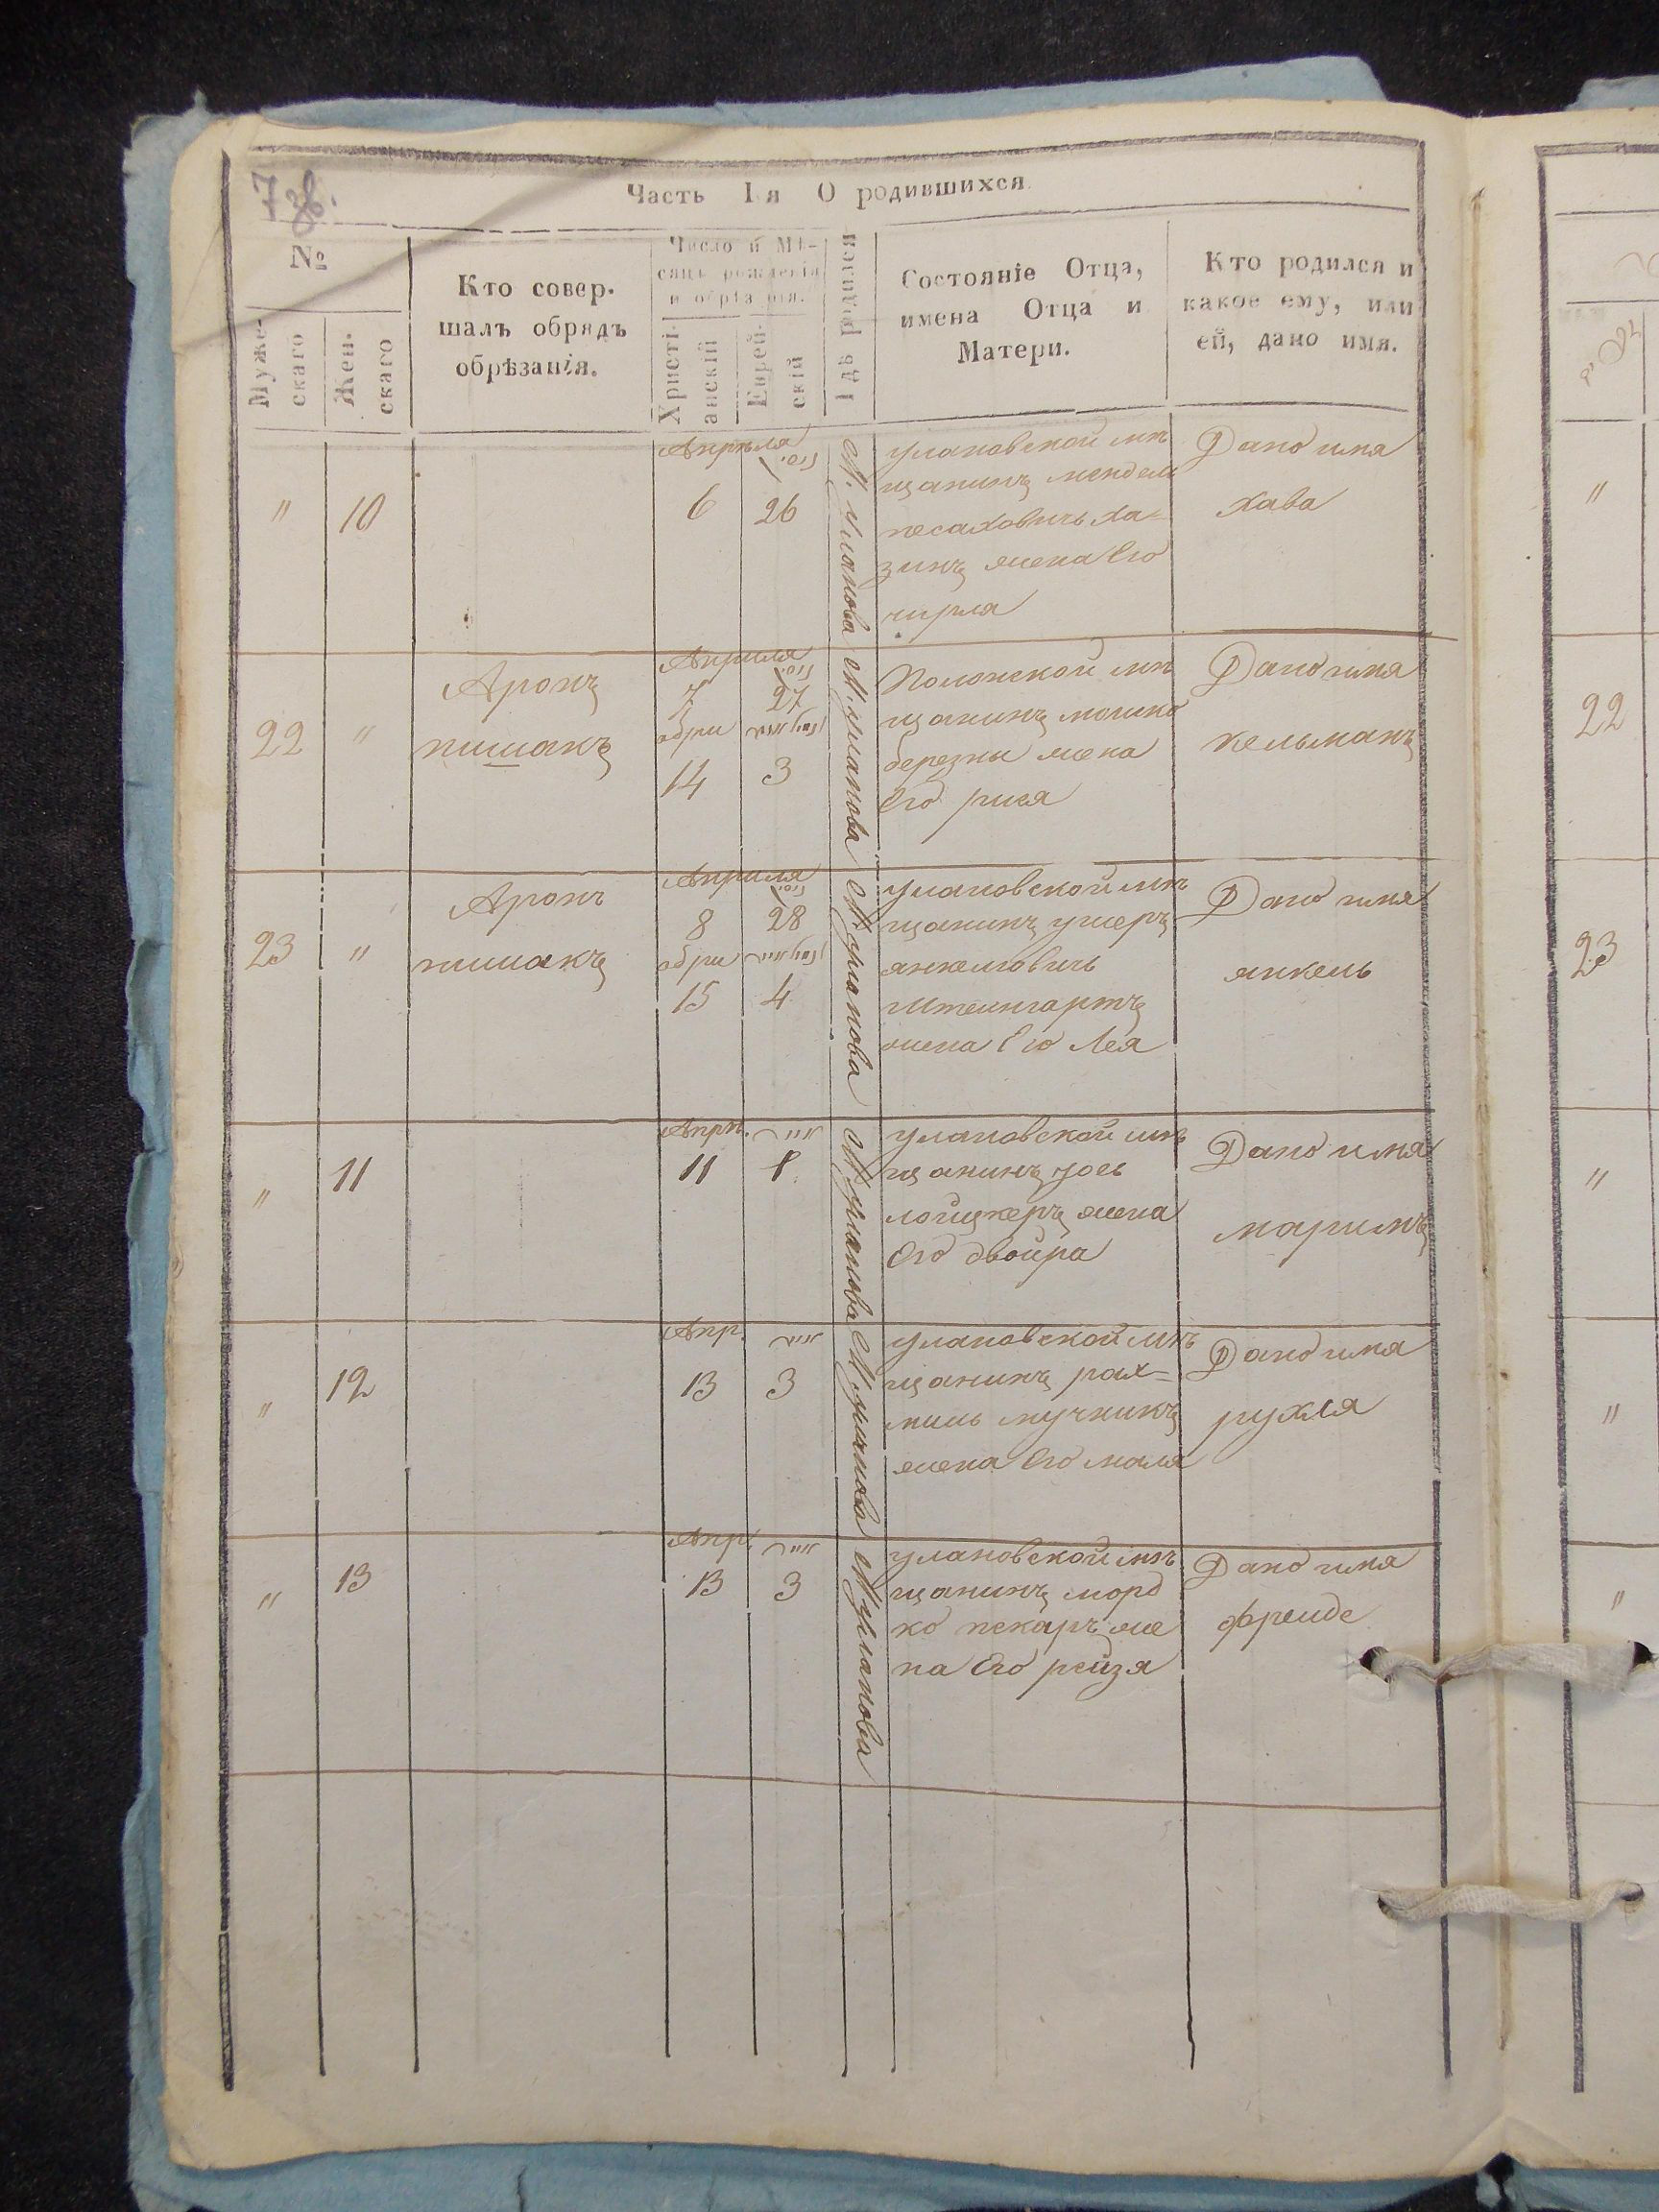 7 зв.
Часть I-я О родившихся
№
Муже-
скаго
Жен-
скаго
Кто совер-
шалъ обрядъ
обрѣзанія.
Число и Мѣ-
сяцъ рожденія
и обрѣзанія.
Христі-
анскій
Еврей-
скій
Гдѣ родился
Состояніе Отца,
имена Отца и
Матери.
Кто родился и
какое ему, или
ей, дано имя.
" 10
Апрѣля
6 26
М. уланова
улановской мѣ
щанинъ мендель
песаховичь ха-
зинъ жена Его
чирля
Дано имя
хава
22 "
Аронъ
пишакъ
Априля
7 27
обри
14 3
М. уланова
Полонской мѣ
щанинъ мошко
березны жена
Его рися
Дано имя
кельманъ
23 "
Аронъ
пишакъ
Априля
8 28
обри
15 4
М. уланова
улановской мѣ
щанинъ ушеръ
янкелиовичь
Штеингартъ
жена Его Лея
Дано имя
янкель
" 11
Апри.
11 1
М. уланова
улановской мѣ
щанинъ іось
лойцкеръ жена
Его двойра
Дано имя
маримъ
" 12
Апр.
13 3
М. уланова
улановской мѣ
щанинъ рах-
миль мучникъ
жена Его маля
Дано имя
рухля
" 13
Апр.
13 3
М. уланова
улановской мѣ
щанинъ морд
ко пекарь же
на Его рейзя
Дано имя
фреиде
"
22
23
"
"
"